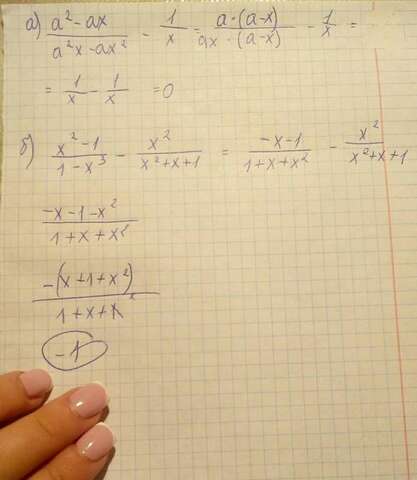 а) (a² - ax)/(a²x - ax²) - 1/x = a·(a-x)/ax·(a-x) - 1/x =
= 1/x - 1/x = 0
б) (x² - 1)/(1 - x³) - x²/(x² + x + 1) = (-x - 1)/(1 + x + x²) - x²/(x² + x + 1)
(-x - 1 - x²)/(1 + x + x²)
-(x + 1 + x²)/(1 + x + x²)
-1